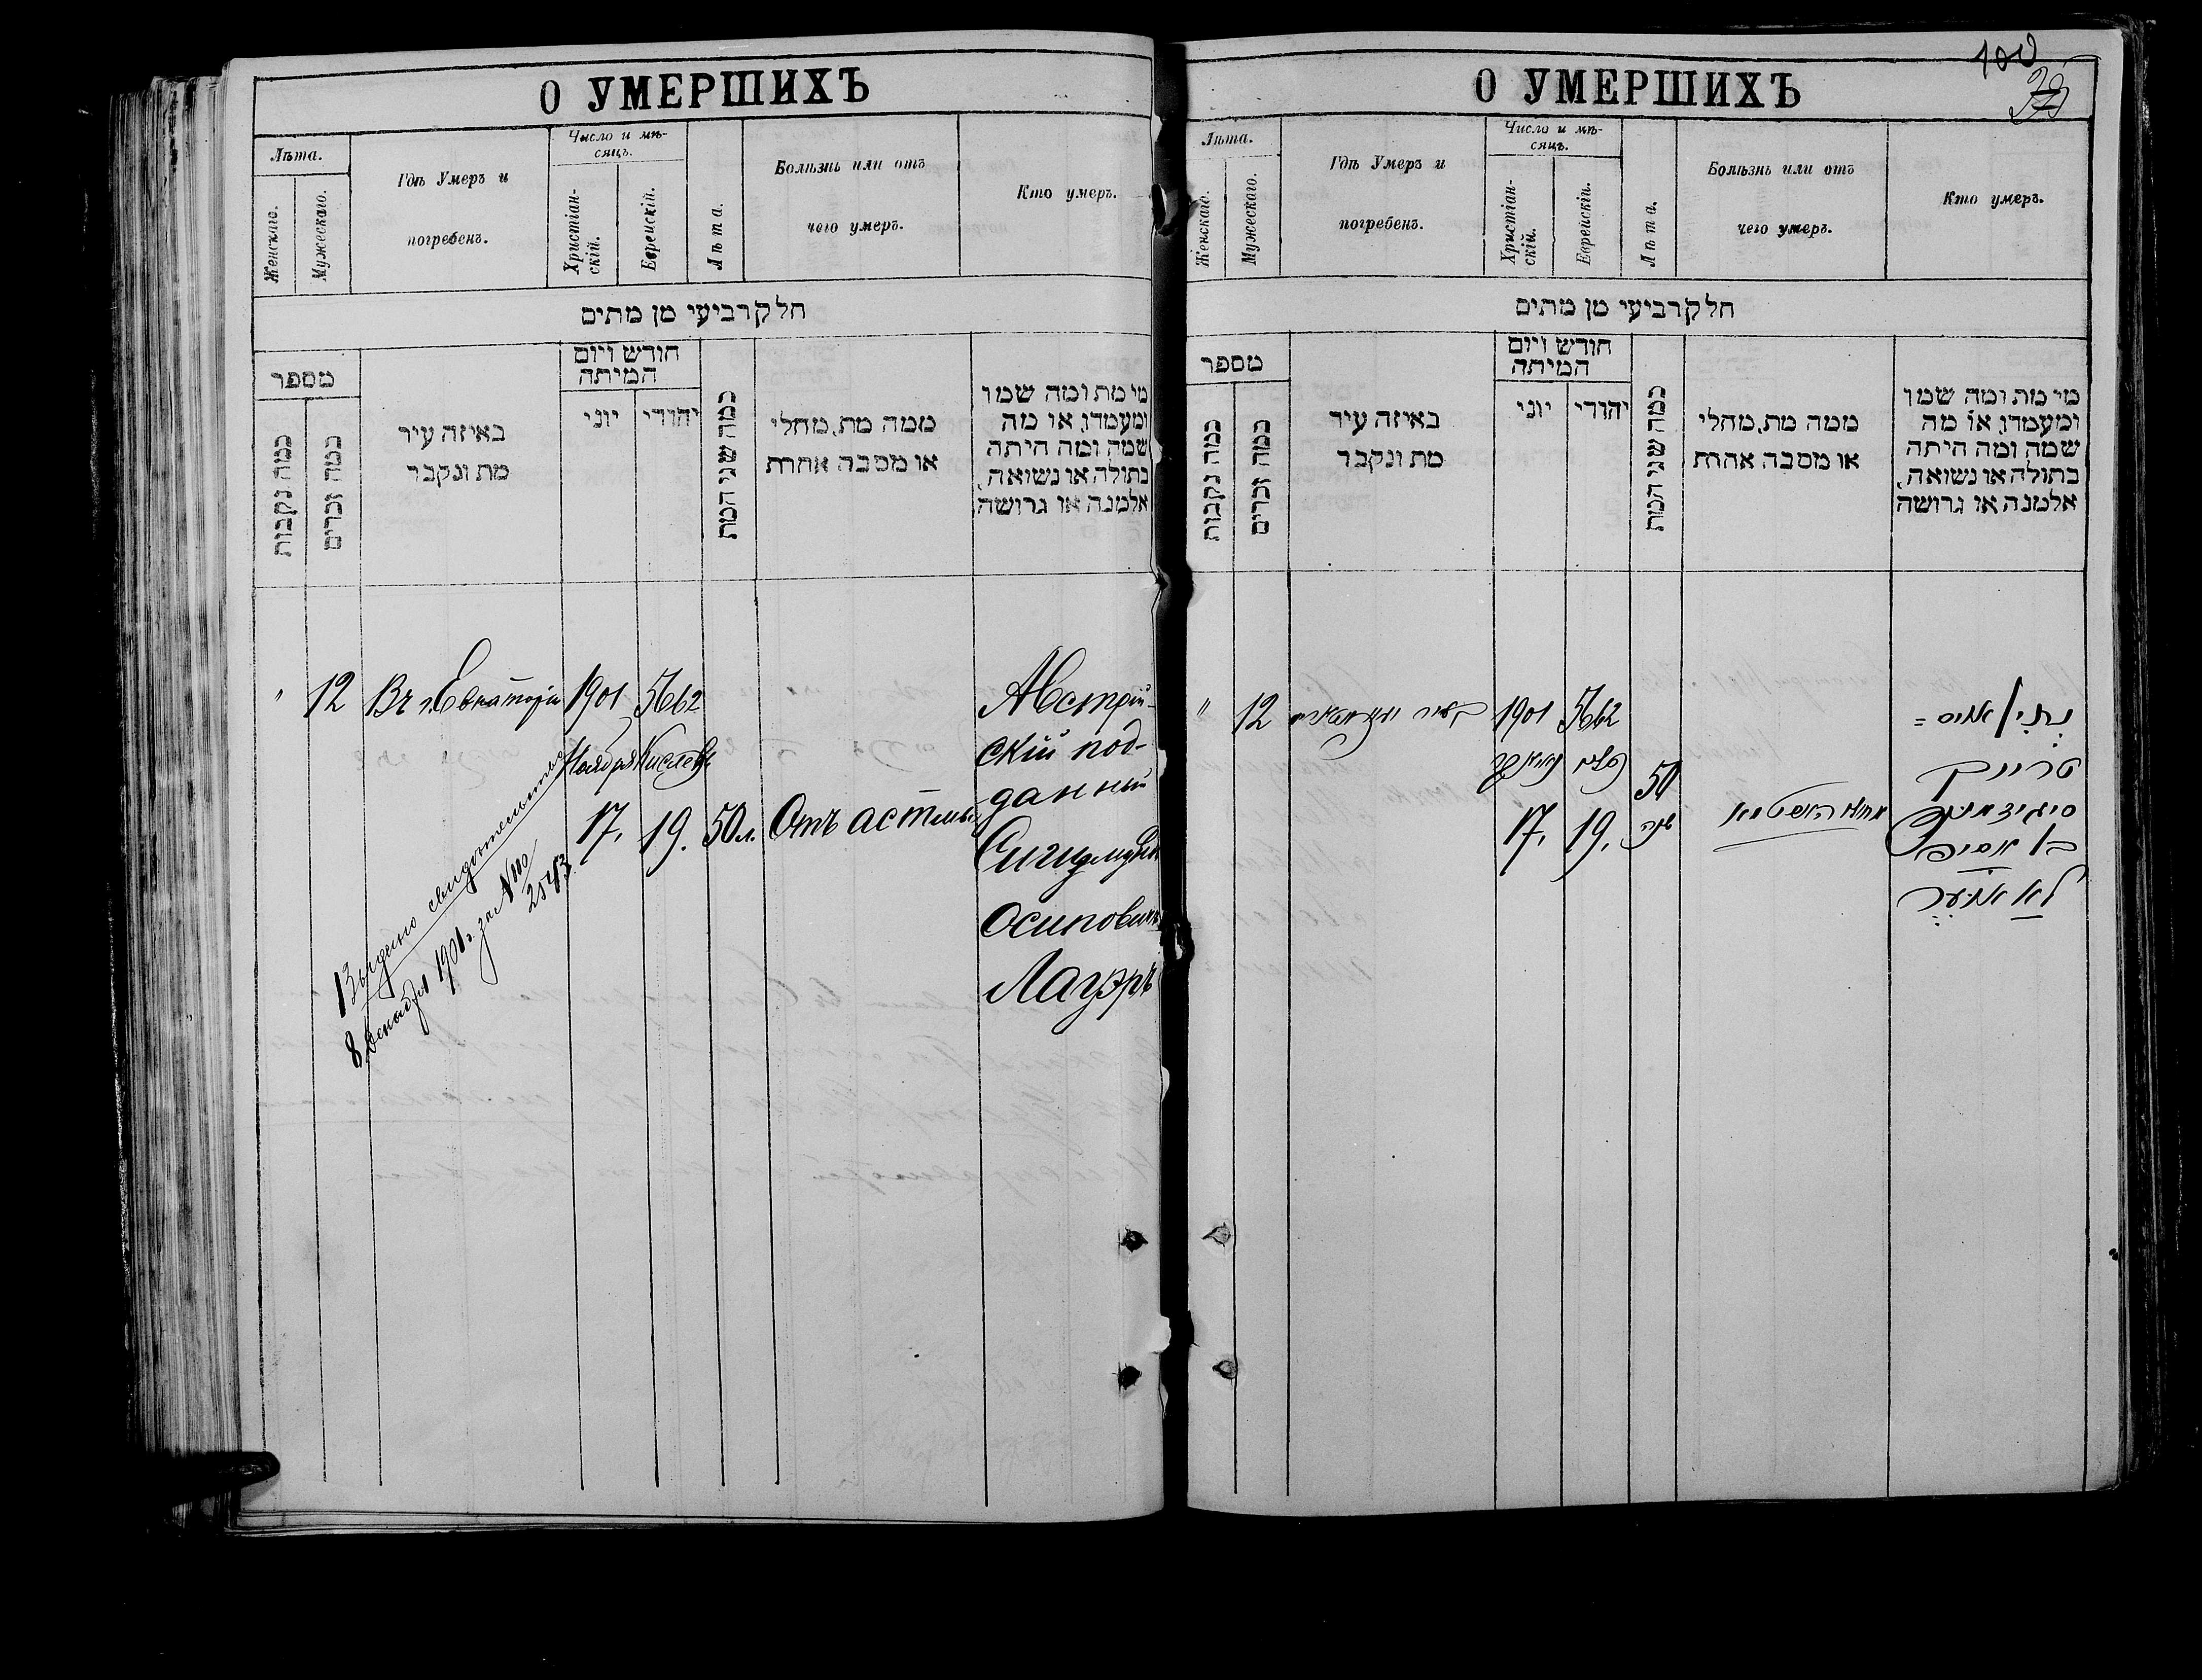 О УМЕРШИХЪ
Лѣта.
Женскаго.
Мужескаго.
Гдѣ Умеръ и
погребенъ.
Число и мѣ-
сяцъ.
Христіан-
скій.
Еврейскій.
Лѣта.
Болѣзнь или отъ
чего умеръ.
Кто умеръ.
חלק רביעי מן מתים
מספר
כמה נקבות
כמה זכרים
באיזה עיר
מת ונקבר
חודש ויום
המיתה
יוני
יהודי
כמה שני המת
ממה מת, מחלי
או מסבה אחרת
מי מת ומה שמו
ומעמדו, או מה
שמה ומה היתה
בתולה או נשואה,
אלמנה או גרושה
"
12
Въ г. Евпаторіи
1901
Ноября
17.
5662
Кислевъ
19.
50 л.
Отъ астмы
Австрій-
скій под-
данный
Сигизмундъ
Осиповичъ
Лауэръ
Выдано свидѣтельство
8 Декабря 1901 г. за №
2543.
100
О УМЕРШИХЪ
Лѣта.
Женскаго.
Мужескаго.
Гдѣ Умеръ и
погребенъ.
Число и мѣ-
сяцъ.
Христіан-
скій.
Еврейскій.
Лѣта.
Болѣзнь или отъ
чего умеръ.
Кто умеръ.
חלק רביעי מן מתים
מספר
כמה נקבות
כמה זכרים
באיזה עיר
מת ונקבר
חודש ויום
המיתה
יוני
יהודי
כמה שני המת
ממה מת, מחלי
או מסבה אחרת
מי מת ומה שמו
ומעמדו, או מה
שמה ומה היתה
בתולה או נשואה,
אלמנה או גרושה
"
12
1901
17.
5662
כסלו
19.
50
שנה
נתין אויס=
טרייך
סיגיזמונד
בן אסיפ
לאאוער